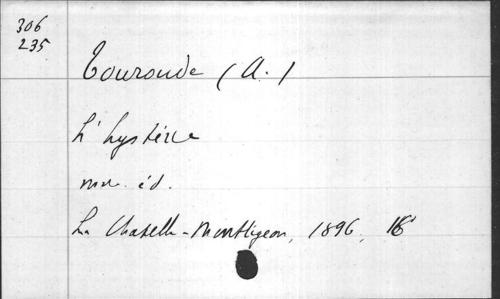 306
235
Touroude (A.)
L'hystérie
nouv. éd.
La Chapelle-Montligeon, 1896, 16°